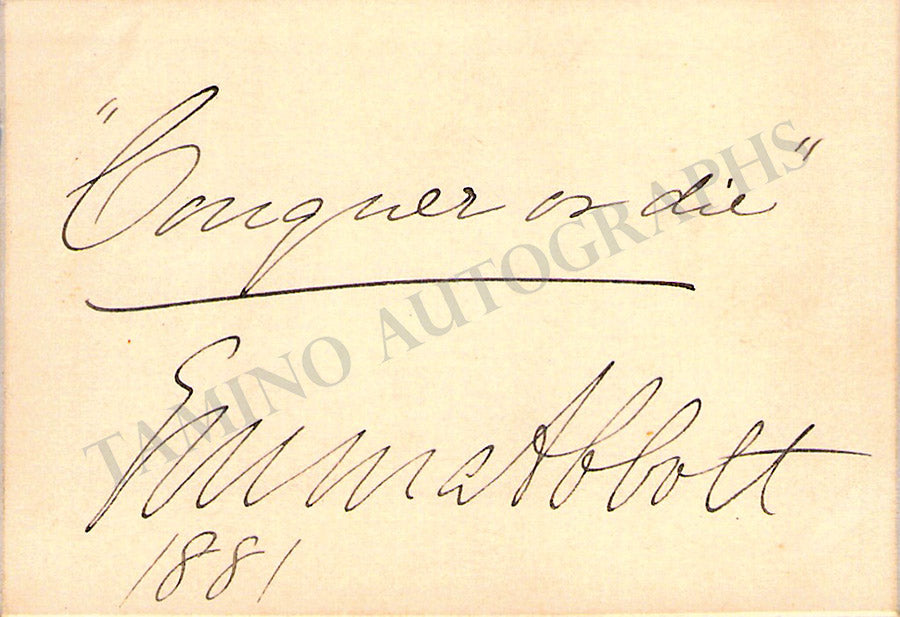 "Conquer or die"
TAMINO AUTOGRAPHS
Emma Abbott
1881